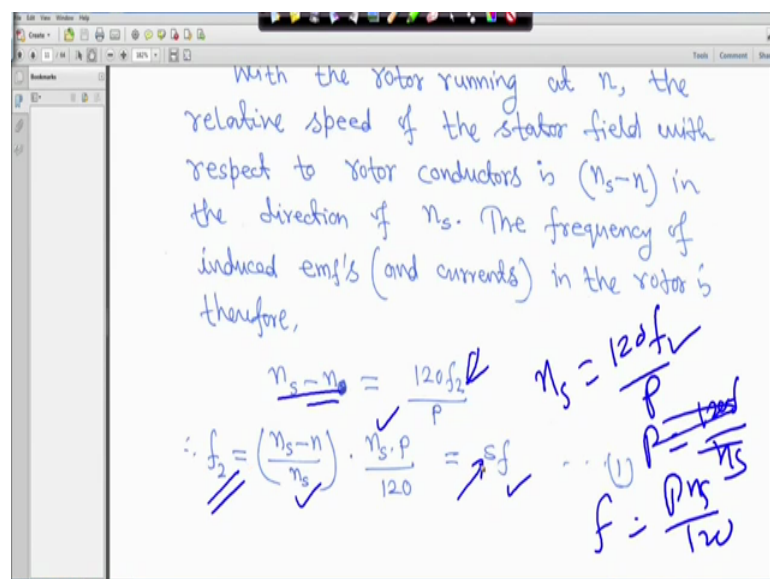 File Edit View Window Help
Create
11 / 64
182%
Tools Comment
Bookmarks
With the rotor running at n, the
relative speed of the stator field with
respect to rotor conductors is (ns-n) in
the direction of ns. The frequency of
induced emf's (and currents) in the rotor is
therefore,
ns - n = 120f2 / P
∴ f2 = ((ns-n) / ns) · (ns.P / 120) = sf --- (1)
ns = 120f / P
P = 120f / ns
f = Pns / 120